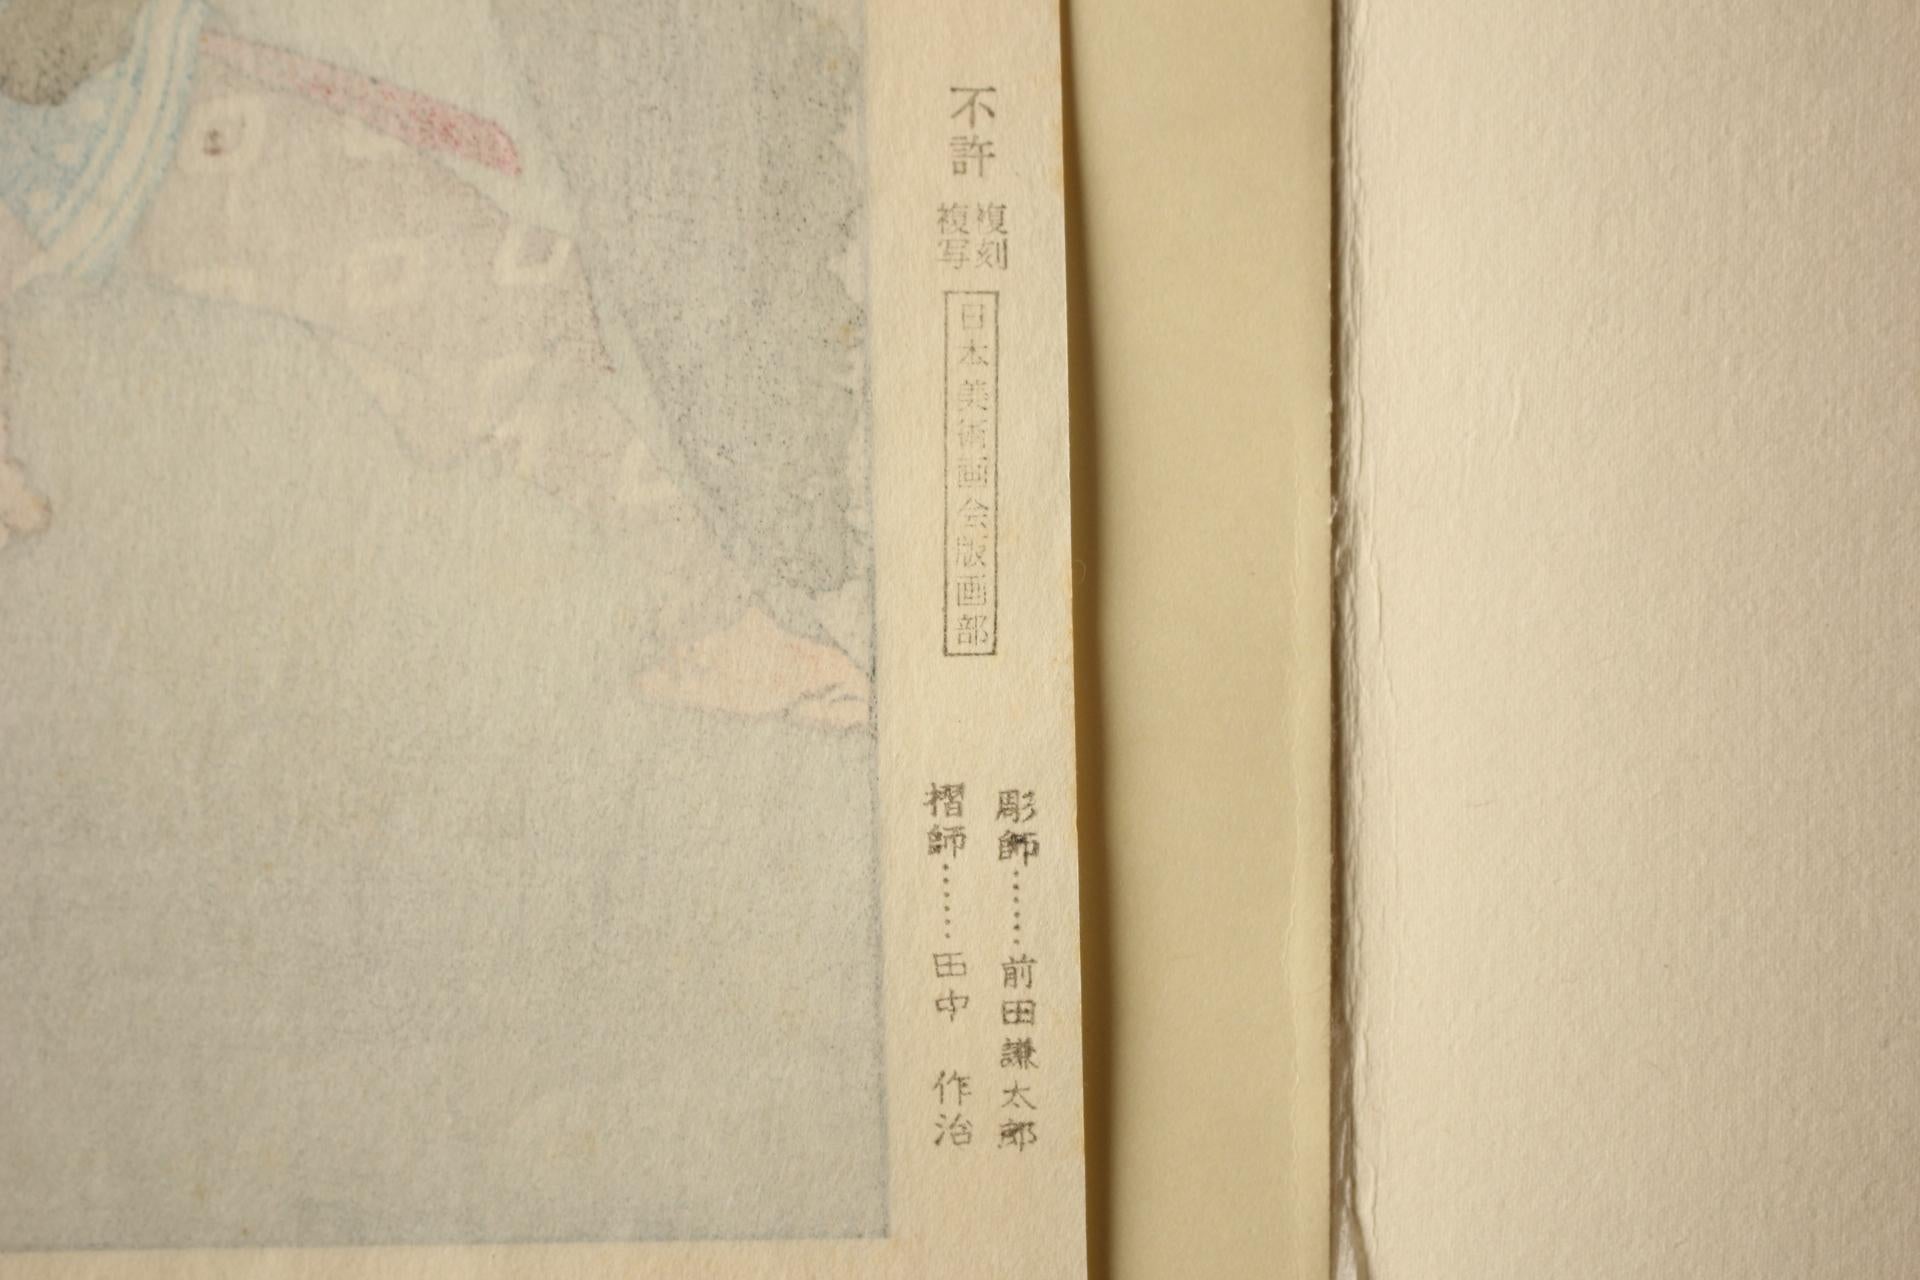 不許
複刻
複写
日本美術画会版画部
彫師……前田謙太郎
摺師……田中 作治